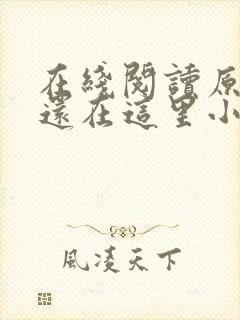 在綫閱讀原
還在這里小
風凌天下